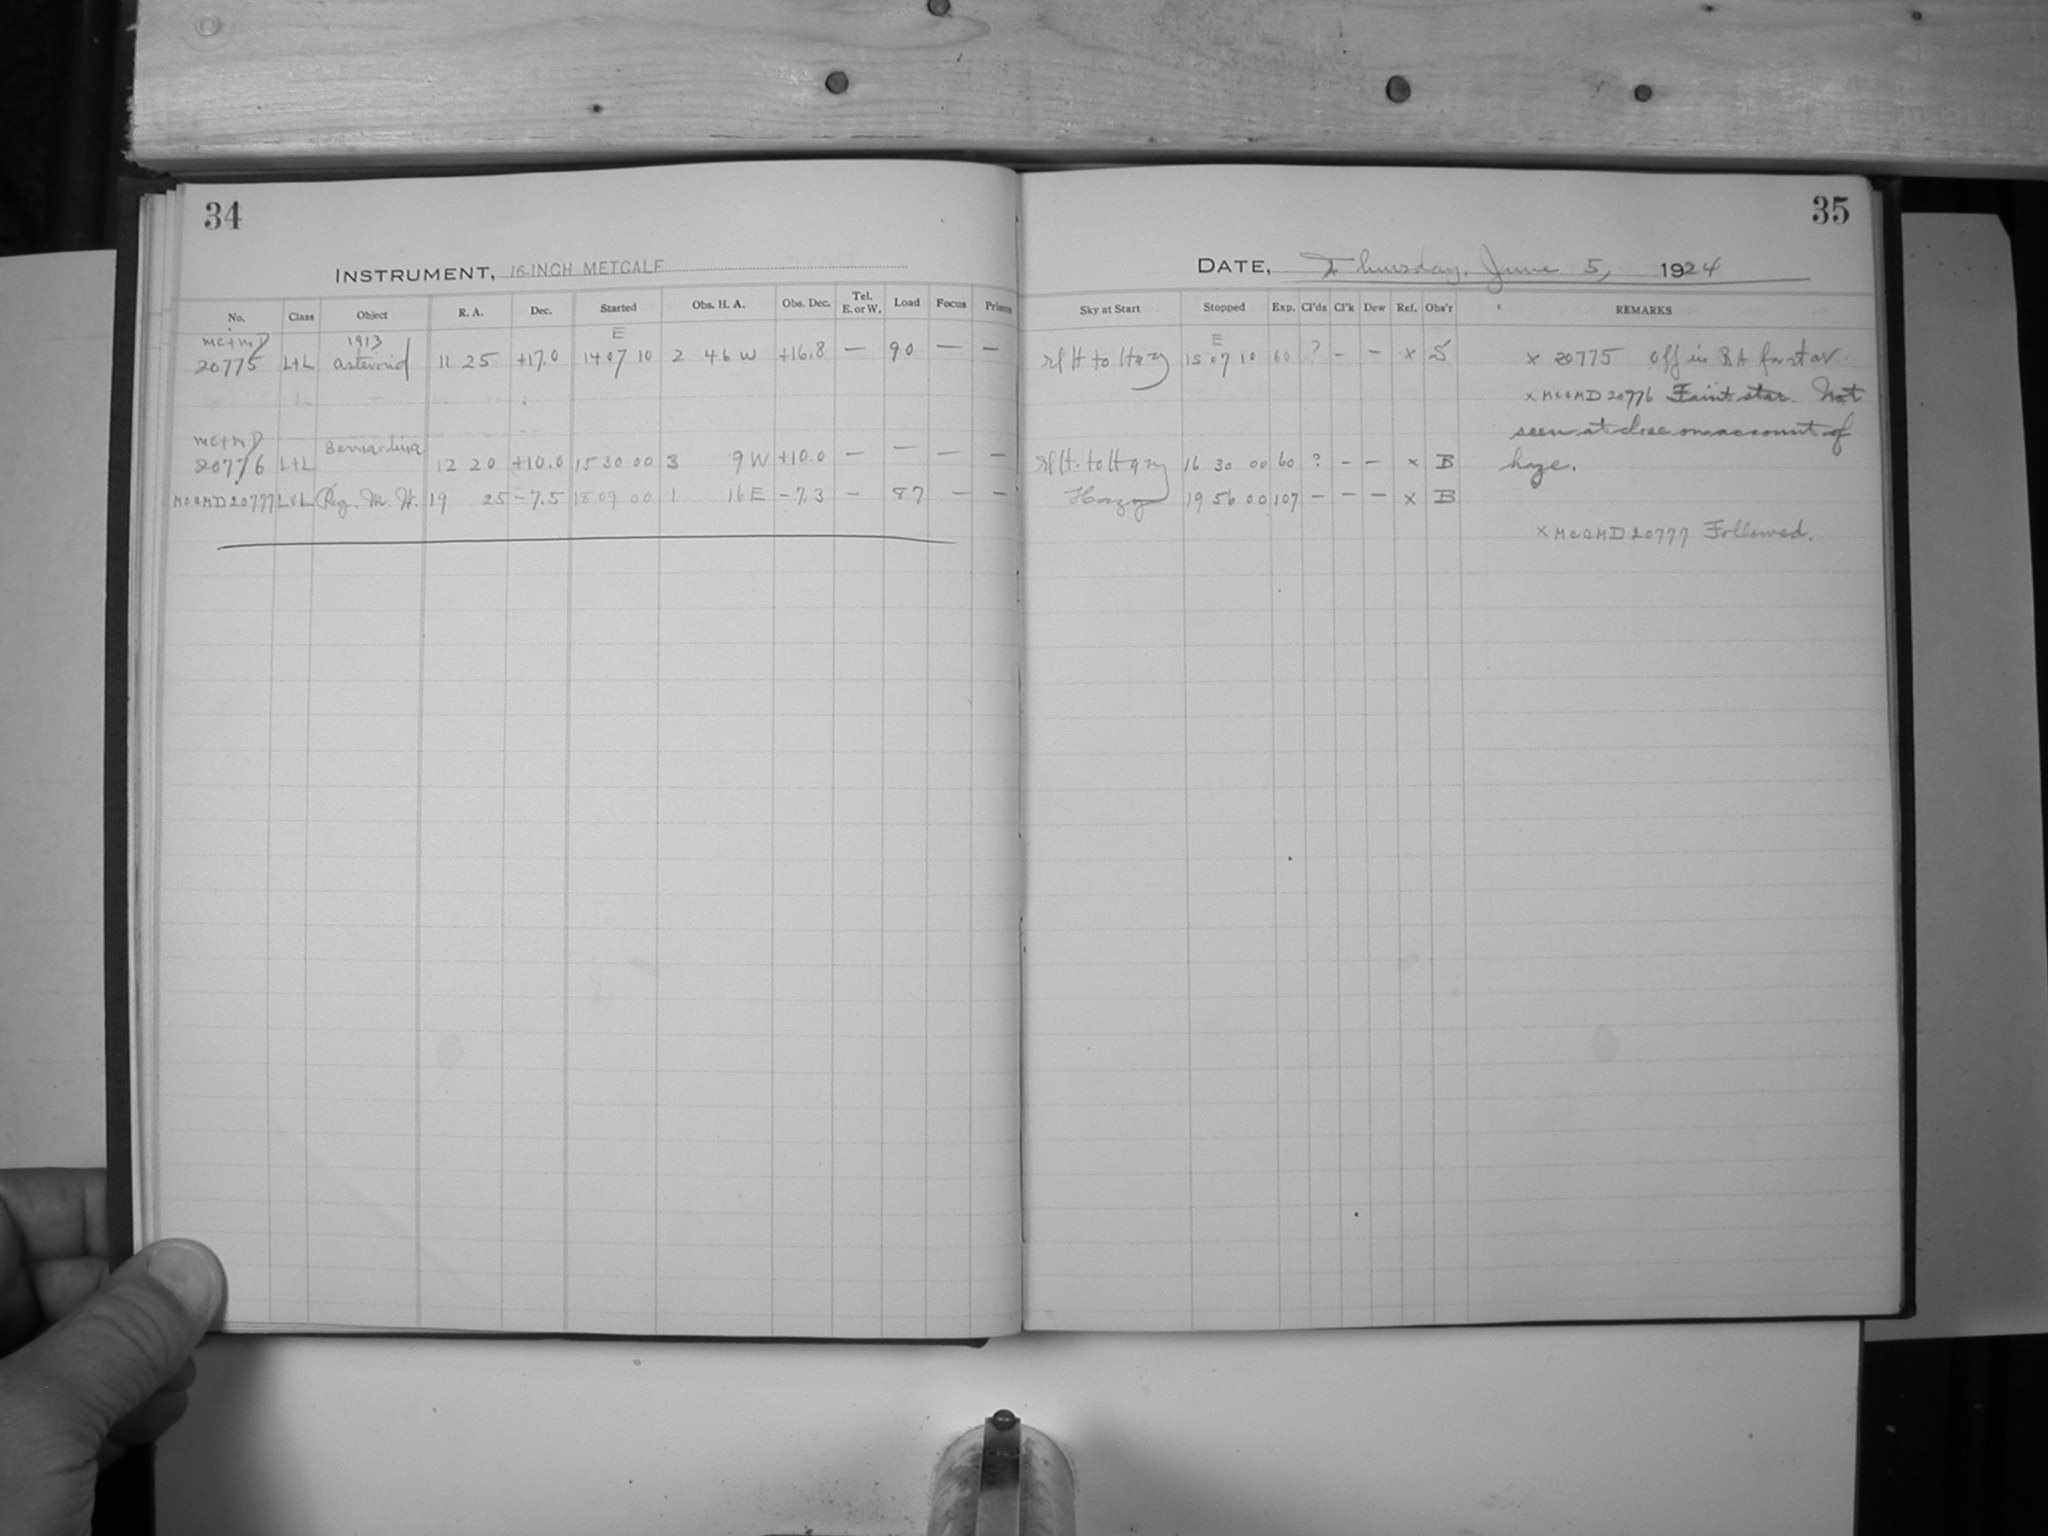 34
INSTRUMENT, 16-INCH METCALF
No. Class Object R. A. Dec. Started Obs. H. A. Obs. Dec. Tel. E. or W. Load Focus Prisms
MC+MD 1913 E
20775 L+L asteroid 11 25 +17.0 14 07 10 2 46 W +16.8 — 90 — —
MC+MD Bernardina
20776 L+L 12 20 +10.0 15 30 00 3 9 W +10.0 — — — —
MC&MD 20777 L&L Reg. M. H. 19 25 -7.5 18 09 00 1 16 E -7.3 — 87 — —
35
DATE, Thursday, June 5, 1924
Sky at Start Stopped Exp. Cl'ds Cl'k Dew Ref. Obs'r REMARKS
E
Sl H to Hazy 15 07 10 60 ? - - x S x 20775 Off in RA fast av.
x MC&MD 20776 Faint star. Not
seen at close on account of
Sl H. to Hazy 16 30 00 60 ? - - x B haze.
Hazy 19 56 00 107 - - - x B
x MC&MD 20777 Followed.